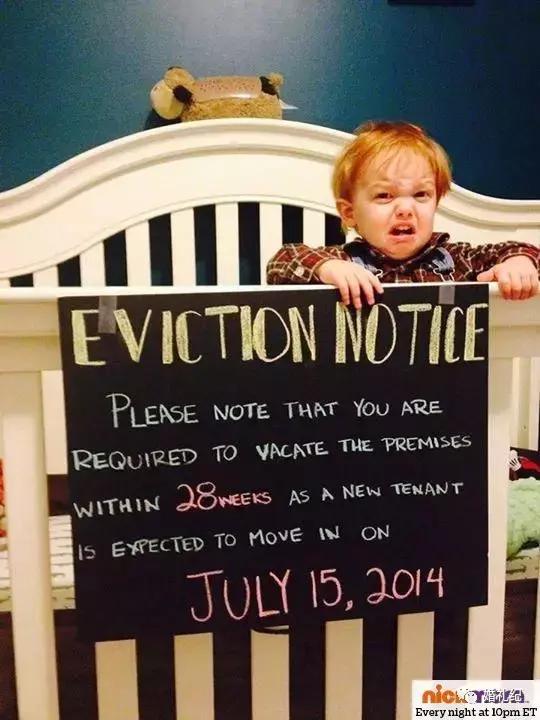 EVICTION NOTICE
PLEASE NOTE THAT YOU ARE
REQUIRED TO VACATE THE PREMISES
WITHIN 28 WEEKS AS A NEW TENANT
IS EXPECTED TO MOVE IN ON
JULY 15, 2014
婚礼纪
Every night at 10pm ET